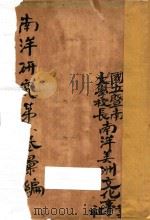 國立暨南
大學校長
南洋美洲文化事
南洋研究第 卷彙編